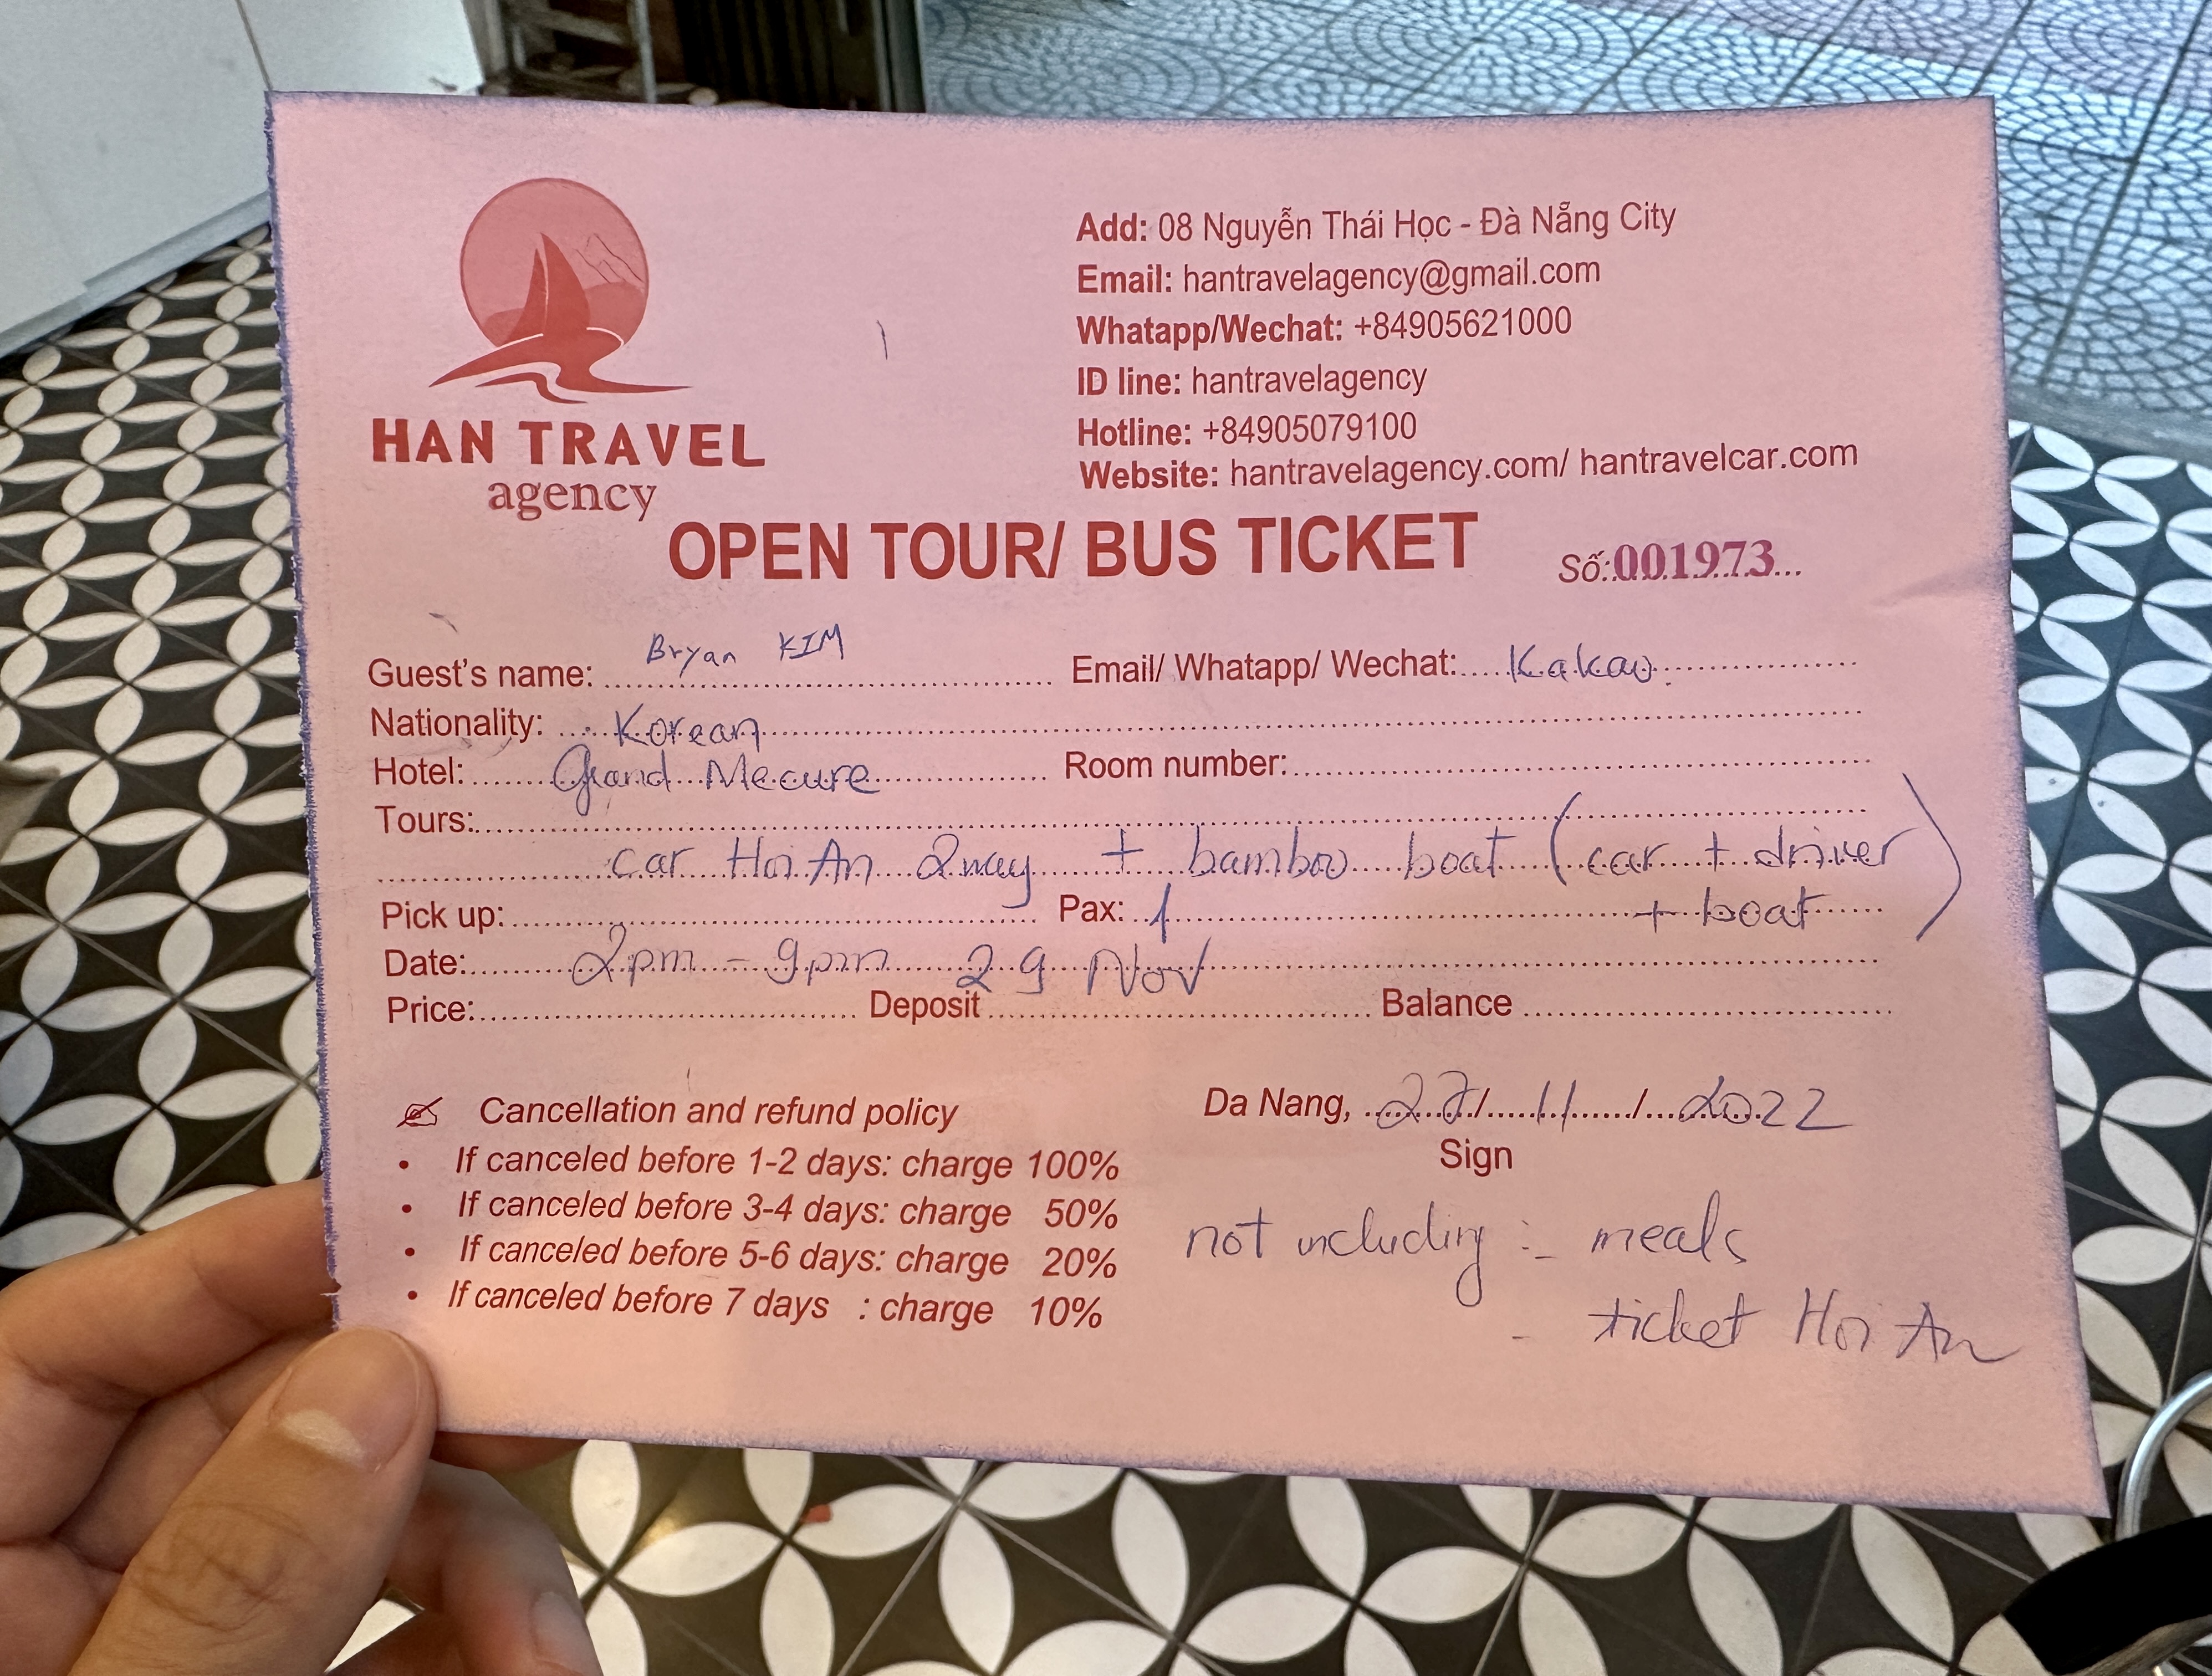 HAN TRAVEL
agency
Add: 08 Nguyễn Thái Học - Đà Nẵng City
Email: hantravelagency@gmail.com
Whatapp/Wechat: +84905621000
ID line: hantravelagency
Hotline: +84905079100
Website: hantravelagency.com/ hantravelcar.com
OPEN TOUR/ BUS TICKET Số: 001973
Guest's name: Bryan KIM Email/ Whatapp/ Wechat: Kakao
Nationality: Korean
Hotel: Grand Mecure Room number:
Tours:
car Hoi An 2way + bamboo boat (car + driver
+ boat)
Pick up: Pax: 1
Date: 2pm - 9pm 29 Nov
Price: Deposit Balance
Cancellation and refund policy
If canceled before 1-2 days: charge 100%
If canceled before 3-4 days: charge 50%
If canceled before 5-6 days: charge 20%
If canceled before 7 days : charge 10%
Da Nang, 27/11/2022
Sign
not including :- meals
- ticket Hoi An